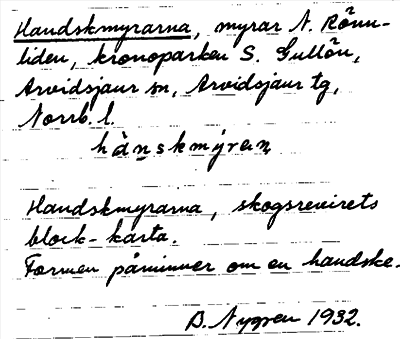 Handskmyrarna, myrar N. Rönn-
liden, kronoparken S. Gullön,
Arvidsjaur sn, Arvidsjaur tg,
Norrb. l.
hànskmýran
Handskmyrarna, skogsrevirets
block-karta.
Formen påminner om en handske.
B. Nygren 1932.